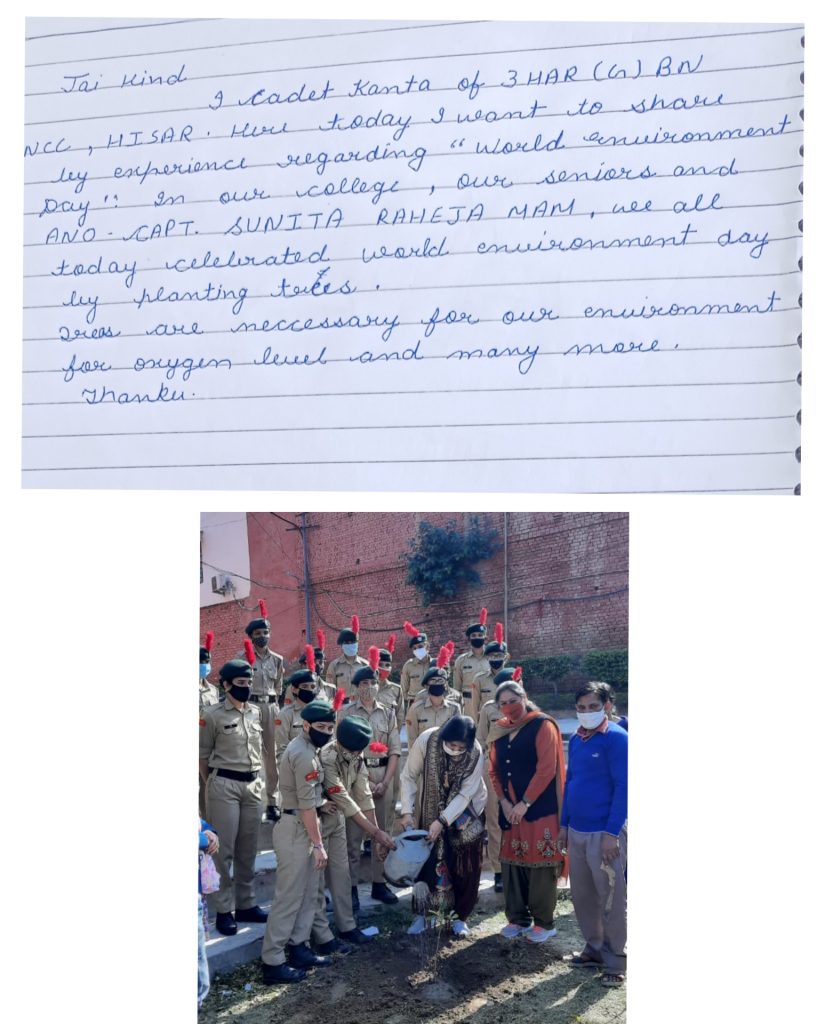 Jai Hind
I cadet Kanta of 3 HAR (G) BN
NCC, HISAR. Here today I want to share
by experience regarding "World environment
Day". In our college, our seniors and
ANO - CAPT. SUNITA RAHEJA MAM, we all
today celebrated world environment day
by planting trees.
Trees are neccessary for our environment
for oxygen level and many more.
Thanku.